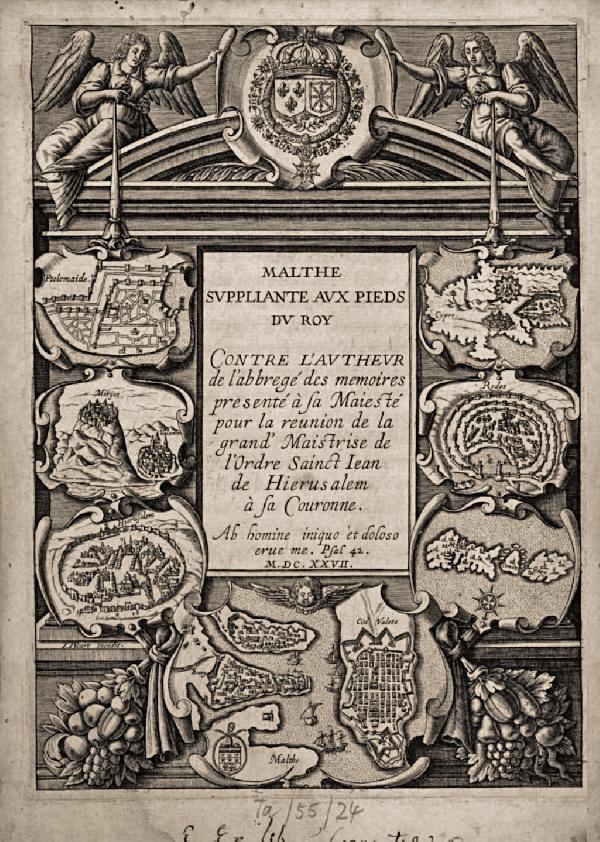 MALTHE
SVPPLIANTE AVX PIEDS
DV ROY
CONTRE L'AVTHEVR
de l'abbregé des memoires
presenté à sa Maiesté
pour la reunion de la
grand' Maistrise de
l'Ordre Sainct Iean
de Hierusalem
à sa Couronne.
Ab homine iniquo et doloso
erue me. Psal 42.
M.DC.XXVII.
Ptolemaide.
Cypre
Margat
Rodes
Hierusalem
Cité Valete
Malthe
Ta/55/24